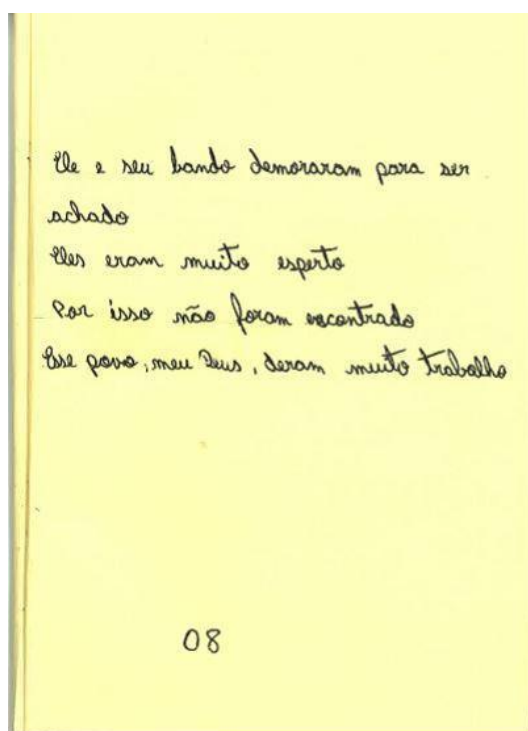 Ele e seu bando demoraram para ser
achado
Eles eram muito esperto
Por isso não foram encontrado
Esse povo, meu Deus, deram muito trabalho
08